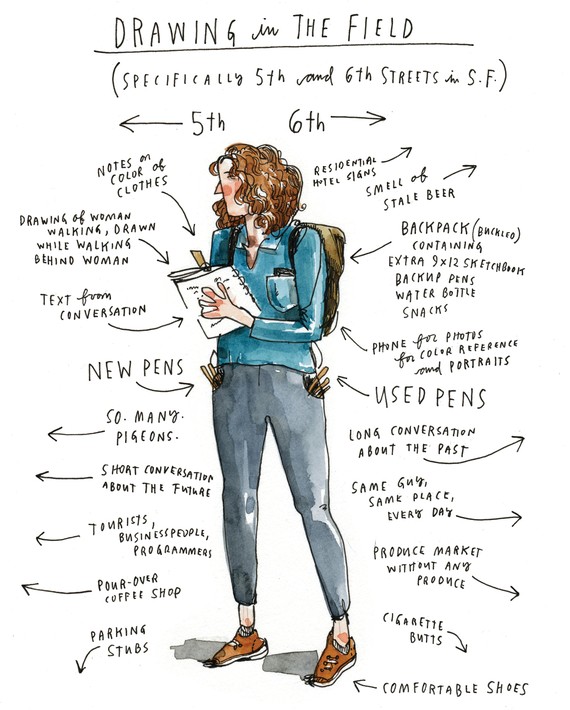 DRAWING in THE FIELD
(SPECIFICALLY 5th and 6th STREETS in S.F.)
5th 6th
NOTES on
COLOR of
CLOTHES
DRAWING of WOMAN
WALKING, DRAWN
WHILE WALKING
BEHIND WOMAN
TEXT from
CONVERSATION
NEW PENS
SO. MANY.
PIGEONS.
SHORT CONVERSATION
ABOUT THE FUTURE
TOURISTS,
BUSINESSPEOPLE,
PROGRAMMERS
POUR-OVER
COFFEE SHOP
PARKING
STUBS
RESIDENTIAL
HOTEL SIGNS
SMELL of
STALE BEER
BACKPACK (BUCKLED)
CONTAINING
EXTRA 9x12 SKETCHBOOK
BACKUP PENS
WATER BOTTLE
SNACKS
PHONE for PHOTOS
for COLOR REFERENCE
and PORTRAITS
USED PENS
LONG CONVERSATION
ABOUT THE PAST
SAME GUY,
SAME PLACE,
EVERY DAY
PRODUCE MARKET
WITHOUT ANY
PRODUCE
CIGARETTE
BUTTS
COMFORTABLE SHOES